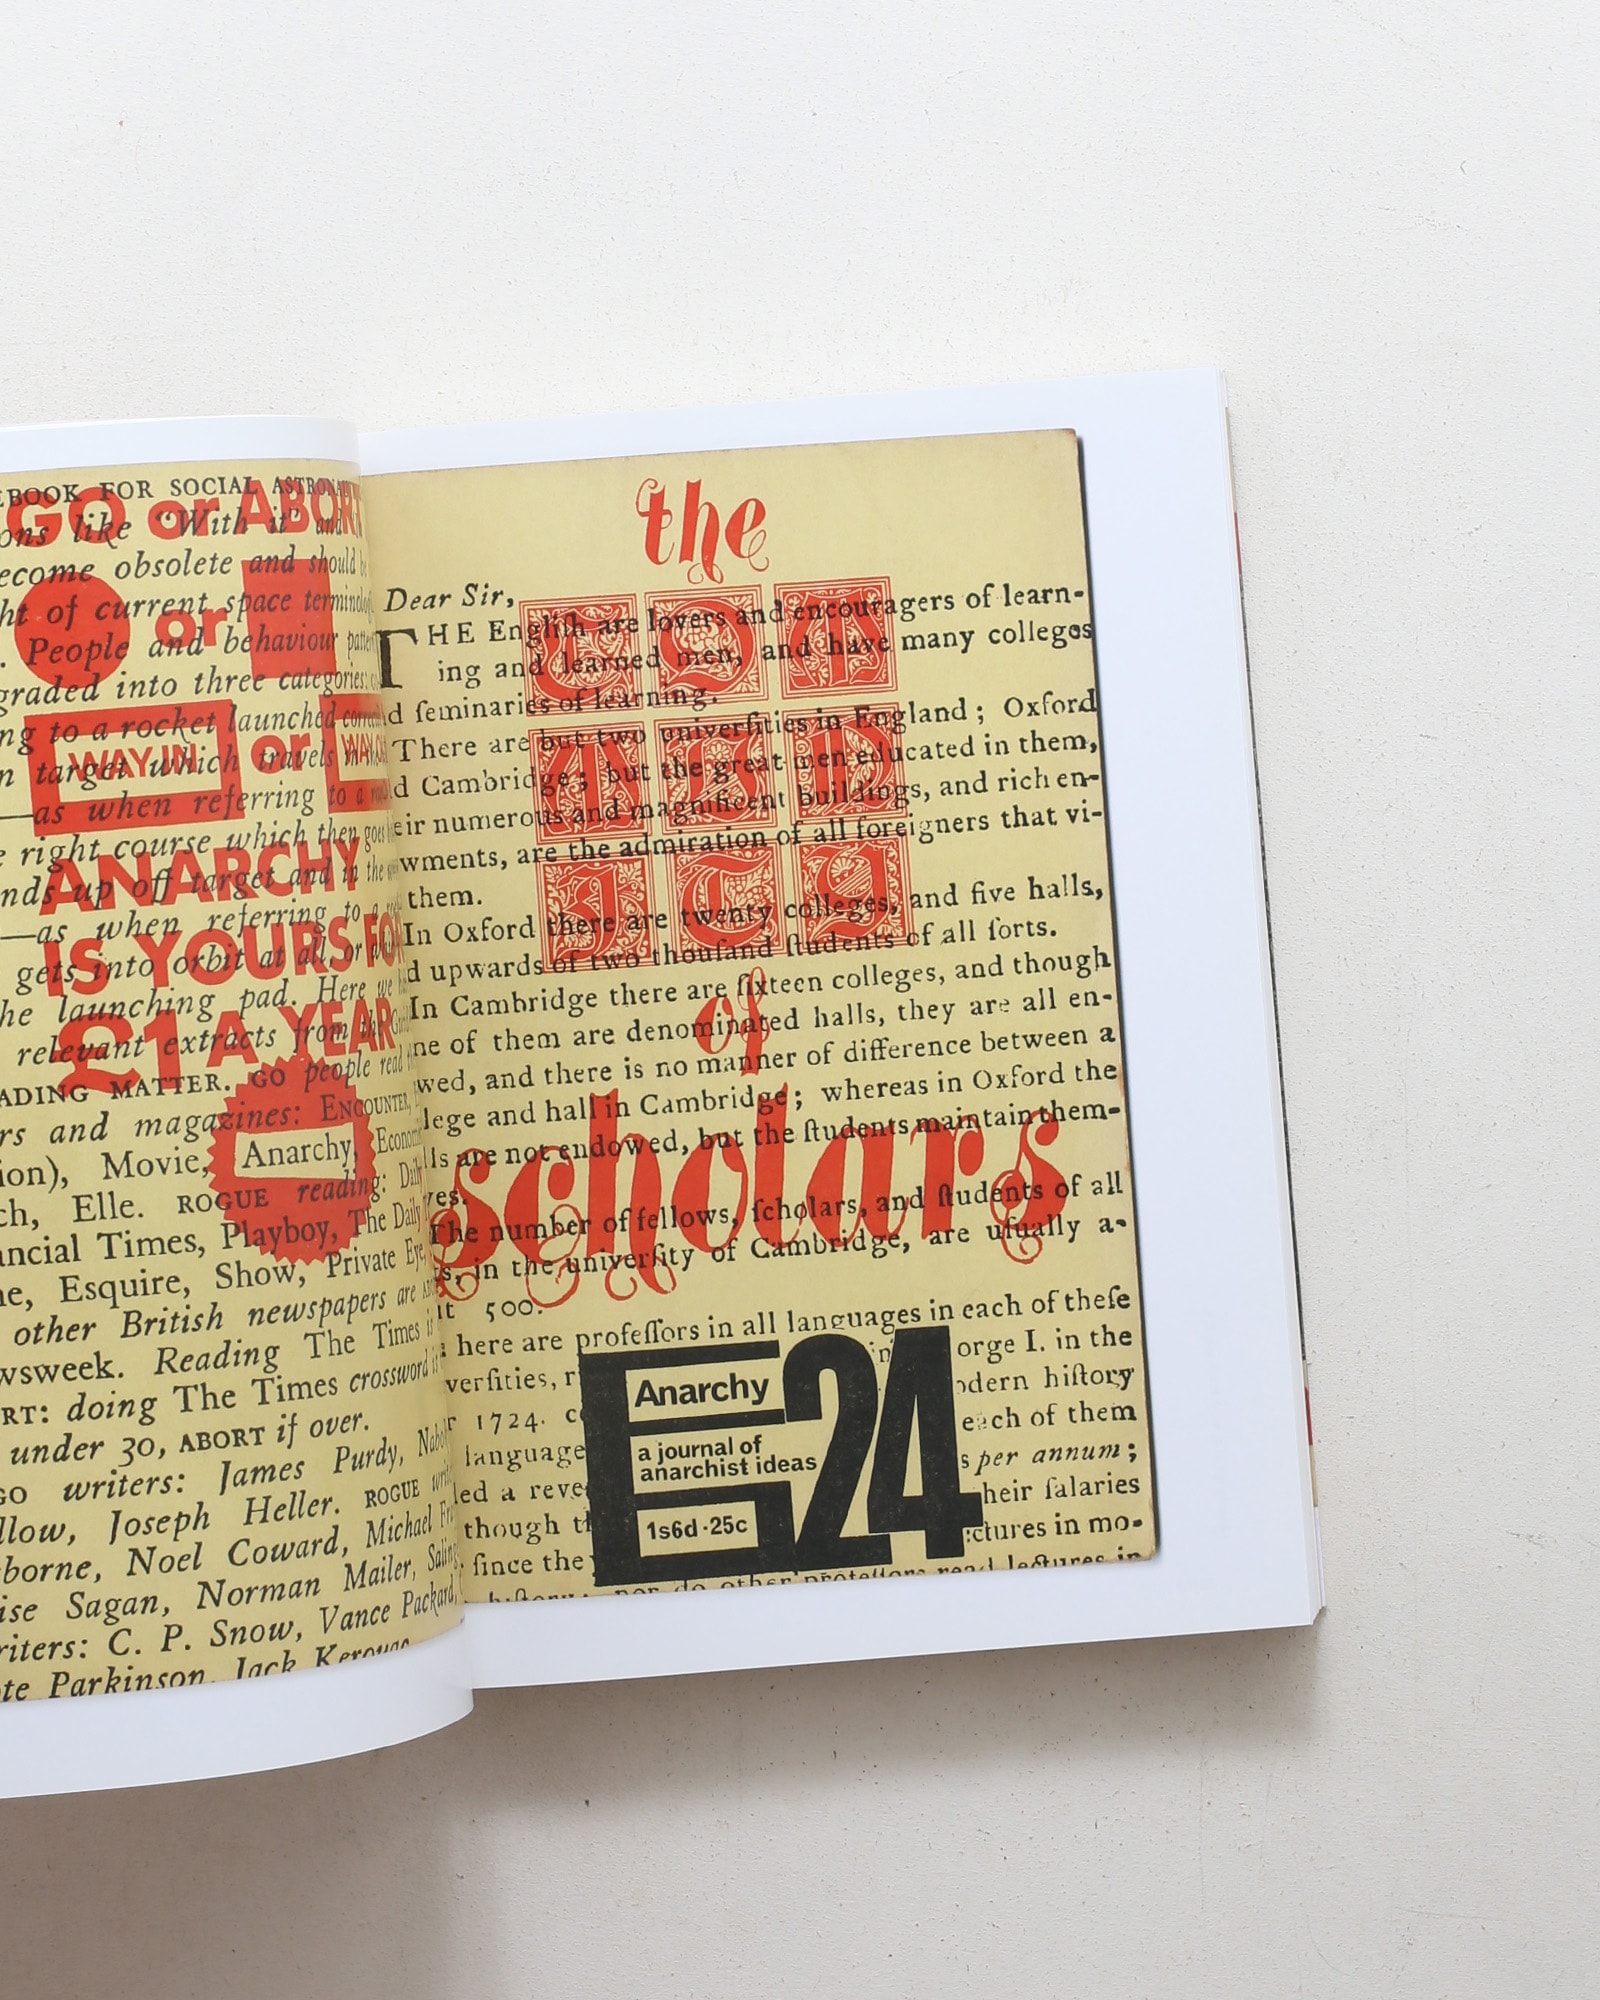 EBOOK FOR SOCIAL
GO or ABORT
ons like "With it" and
ecome obsolete and should be
ht of current space
or
. People and behaviour
graded into three categories:
ng to a rocket launched
WAY IN or WAY
n target which travels
—as when referring to a
e right course which then goes
ANARCHY
nds up off target and in the
—as when referring to a
IS YOURS FOR
gets into orbit at all, or
he launching pad. Here we
£1 A YEAR
relevant extracts from the
ADING MATTER. GO people read
rs and magazines: ENCOUNTER,
ion), Movie, Anarchy,
ch, Elle. ROGUE reading: Daily
ancial Times, Playboy, The Daily
ne, Esquire, Show, Private Eye,
other British newspapers are
wsweek. Reading The Times
RT: doing The Times crossword
under 30, ABORT if over.
GO writers: James Purdy,
llow, Joseph Heller. ROGUE
sborne, Noel Coward, Michael
ise Sagan, Norman Mailer,
riters: C. P. Snow, Vance Packard,
te Parkinson, Jack Kerouac
the
COM
MUN
ITY
of
scholars
Dear Sir,
THE Engliſh are lovers and encouragers of learn-
ing and learned men, and have many colleges
d ſeminaries of learning.
There are but two univerſities in England; Oxford
d Cambridge; but the great men educated in them,
eir numerous and magnificent buildings, and rich en-
wments, are the admiration of all foreigners that vi-
them.
In Oxford there are twenty colleges, and five halls,
d upwards of two thouſand ſtudents of all ſorts.
In Cambridge there are ſixteen colleges, and though
ne of them are denominated halls, they are all en-
wed, and there is no manner of difference between a
lege and hall in Cambridge; whereas in Oxford the
ls are not endowed, but the ſtudents maintain them-
ves.
The number of fellows, ſcholars, and ſtudents of all
s, in the univerſity of Cambridge, are uſually a-
ut 500.
here are profeſſors in all languages in each of theſe
verſities, r orge I. in the
r 1724. c odern hiſtory
language each of them
led a reve s per annum;
though th heir ſalaries
ſince they ctures in mo-
hiſtory; nor do other profeſſors read lectures in
Anarchy 24
a journal of
anarchist ideas
1s6d·25c